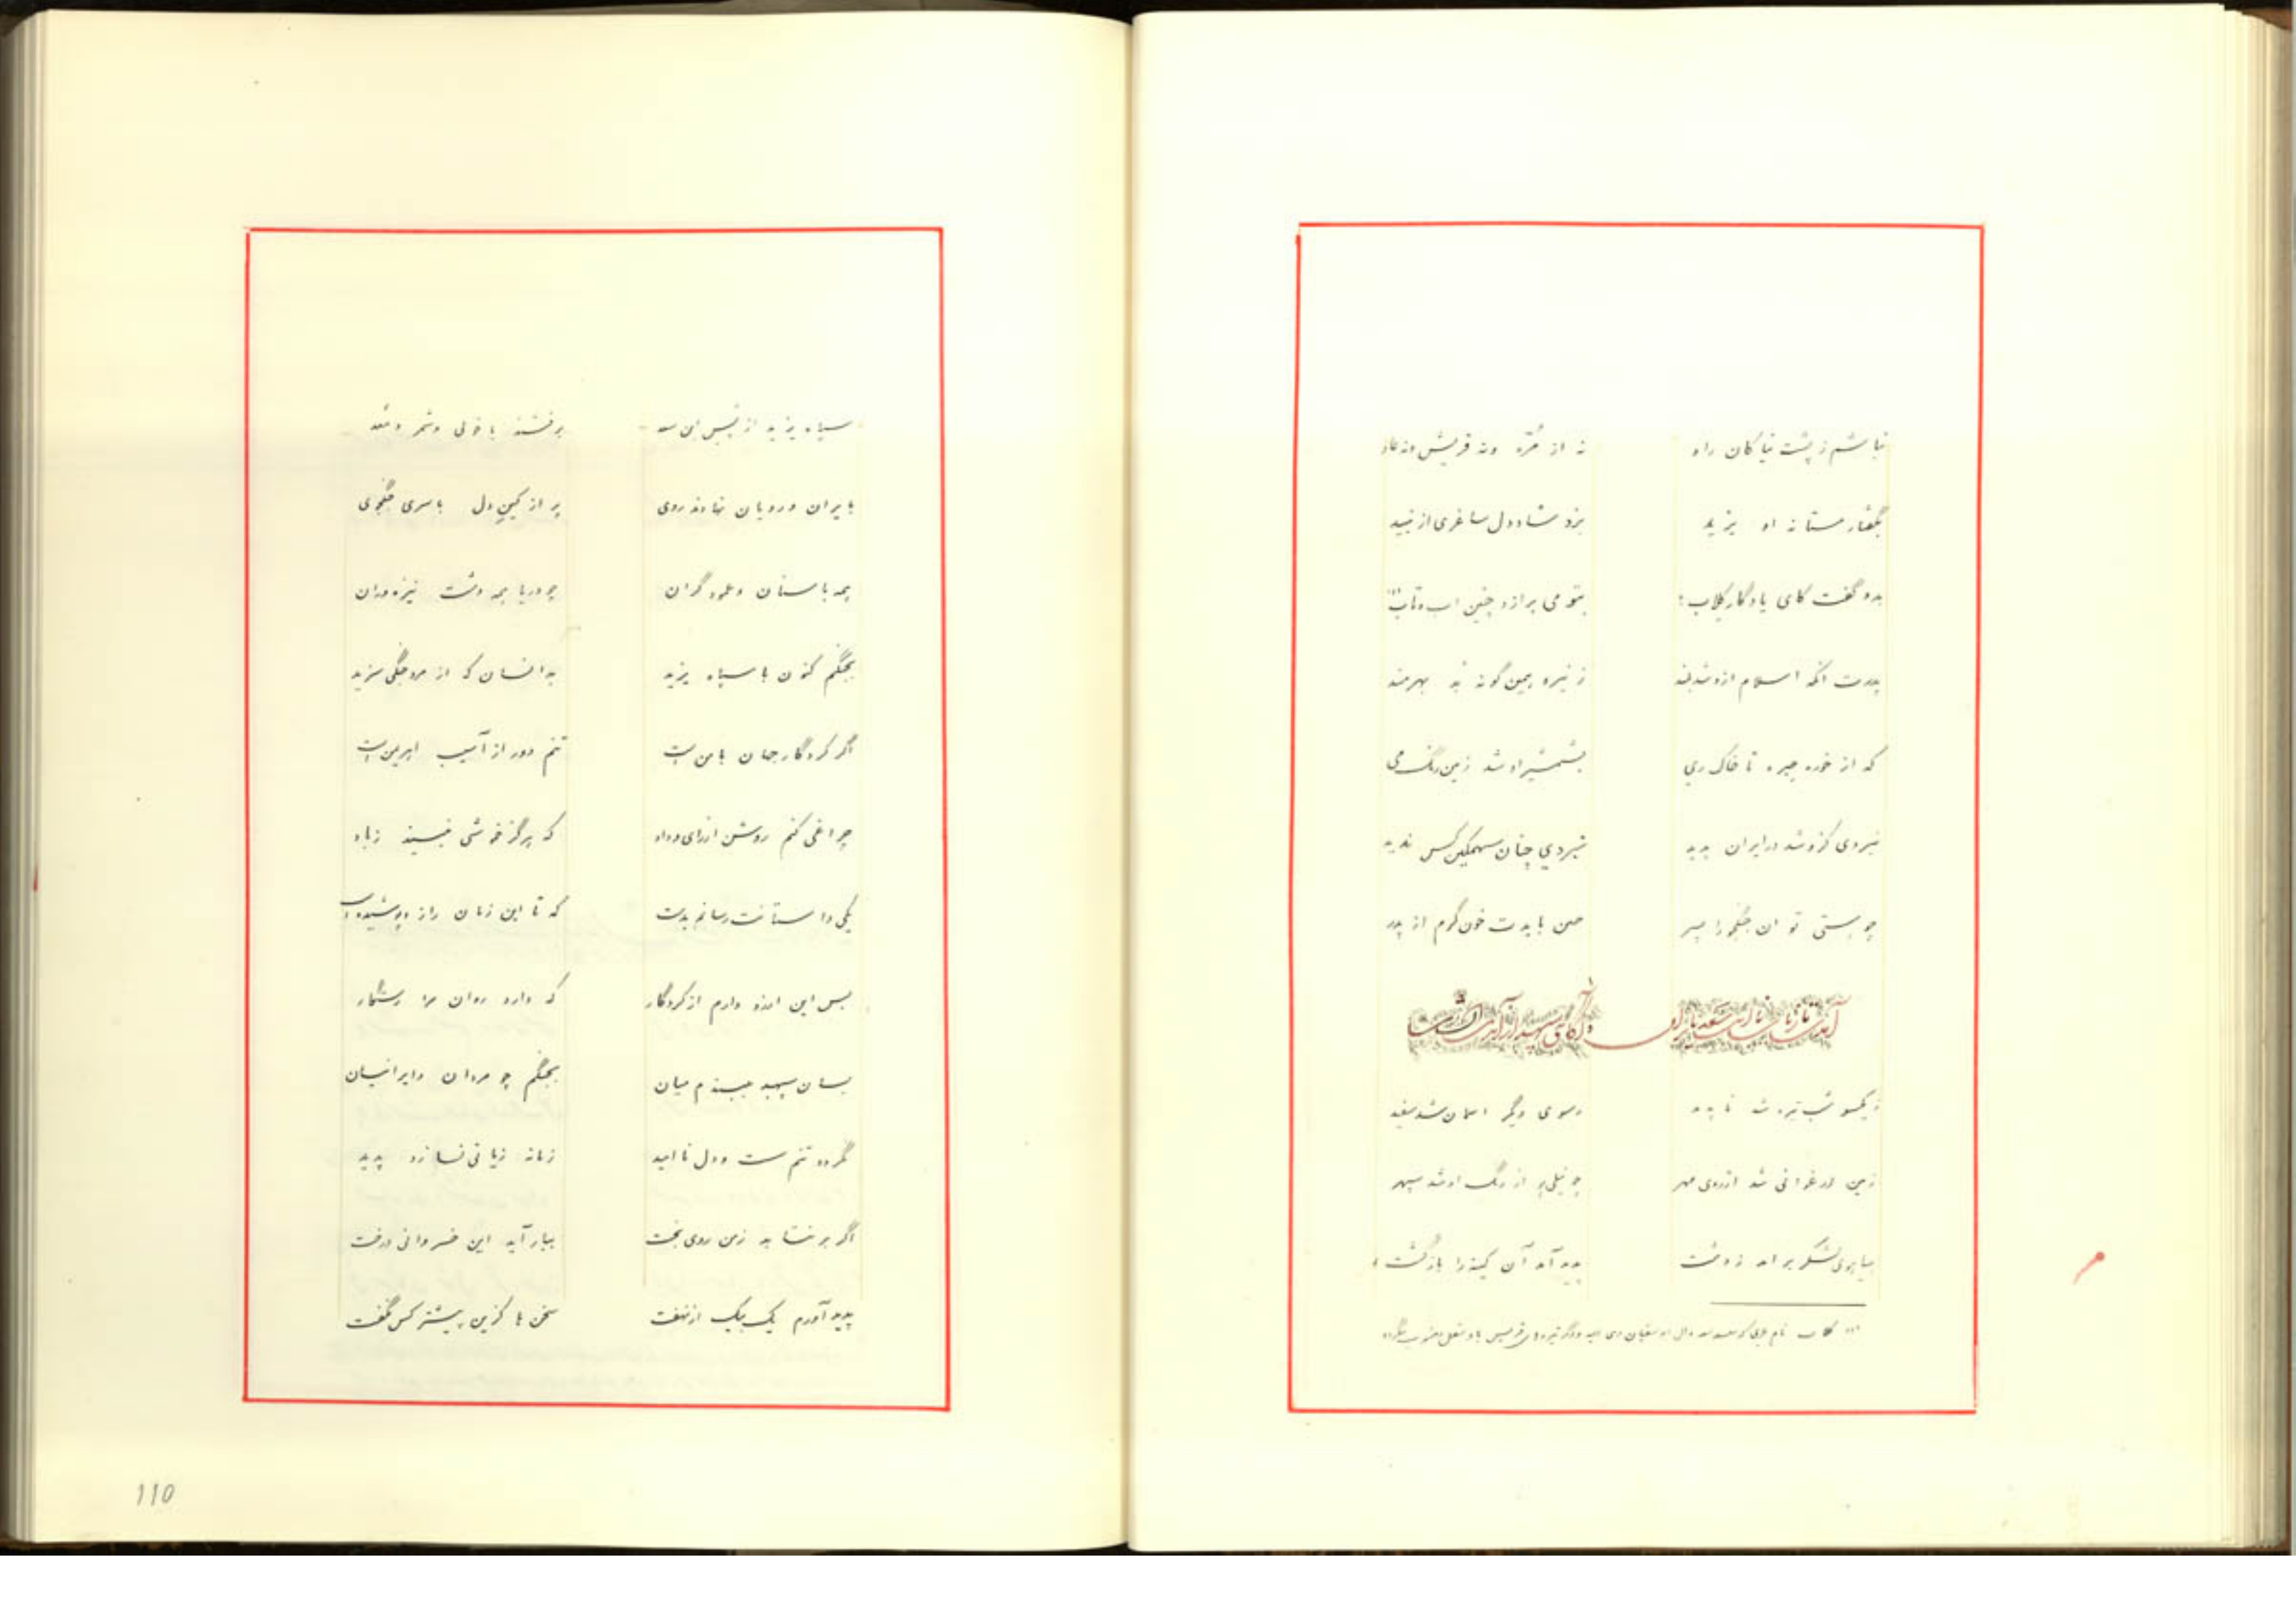 نباشم ز پشت نیاکان راد نه از مُرّه ونه قریش ونه عاد
بگفتار مستانه او یزید بزد شاددل ساغری از نبید
بدو گفت کای یادگار کلاب بتو می برازد چنین اب وتاب (۱)
پدرت انکه اسلام ازوشد بلند ز نیرو بمین گونه بد بهرمند
که از خوره چیره تا خاک ری بشمشیر او شد زمین رنگ می
نبردی کزوشد در ایران پدید نبردی چنان سهمگین کس ندید
چو هستی تو ان جنگجو را پسر همن بایدت خون گرم از پدر
ز یکسو شب تیره شد نا پدید زسوی دگر اسمان شد سفید
زمین ارغوانی شد ازروی مهر چو نیلی پر از رنگ او شد سپهر
هیاهوی لشکر برامد ز دشت پدید آمد آن کینه را بازگشت
(۱) کلاب نام
سپاه یزید از پس ابن سعد برفتند با خولی وشمر وسعد
بایران ورویان نهادند روی پر از کین دل باسری جنگجوی
همه باسنان وعمود گران چو دریا همه دشت نیزه وران
بجنگم کنون با سپاه یزید بدانسان که از مرد جنگی سزید
اگر کردگار جهان با من است تنم دور از آسیب اهریمن است
چراغی کنم روشن ازرای وداد که هرگز خموشی نبیند زباد
یکی داستانت رسانم بدست که تا این زمان راز وپوشیده است
بس این امید دارم از کردگار که دارد روان مرا رستگار
بسان سپهبد ببندم میان بجنگم چو مردان وایرانیان
نگردد تنم سست ودل ناامید زمانه زیانی نسازد پدید
اگر برنتابد زمن روی بخت ببار آید این خسروانی درخت
پدید آورم یک بیک ازنهفت سخن ها کزین پیشتر کس نگفت
110